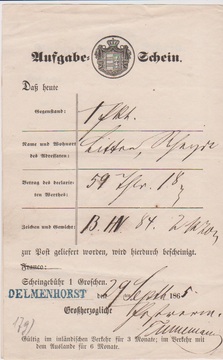 Aufgabe- Schein.
Daß heute
Gegenstand: 1 Pkt.
Name und Wohnort
des Adressaten:
Betrag des declarir-
ten Werthes: 59 Thlr. 18
Zeichen und Gewicht: B. N 84.
zur Post geliefert worden, wird hierdurch bescheinigt.
Franco:
Scheingebühr 1 Groschen.
DELMENHORST den 29 Septb 1865
Großherzogliche
Gültig im inländischen Verkehr für 3 Monate; im Verkehr mit
dem Auslande für 6 Monate.